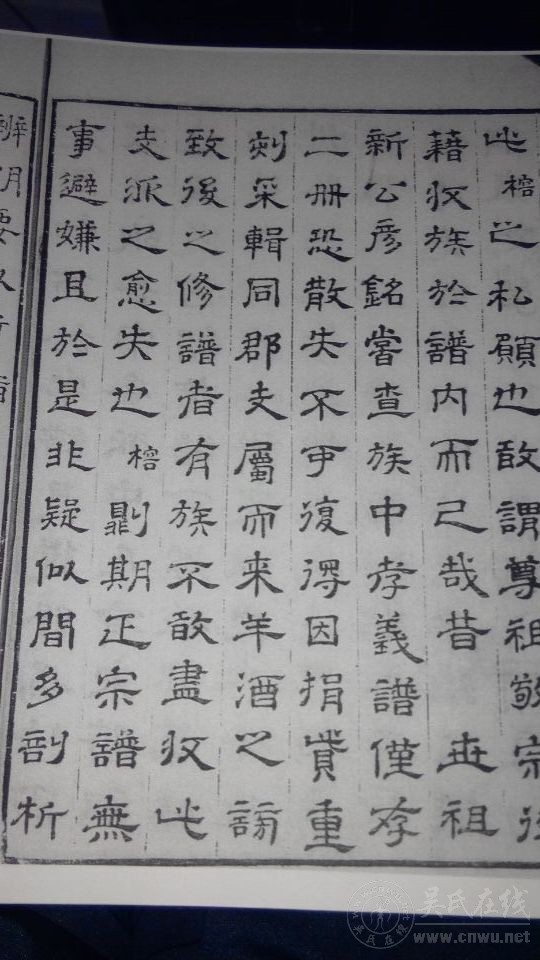 此榕之私願也敢謂尊祖敬宗後
藉收族於譜内而已哉昔 世祖
新公彦銘嘗查族中孝義譜僅存
二册恐散失不可復得因捐貲重
刻采輯同郡支屬而來羊酒之謗
致後之修譜者有族不敢盡收此
支派之愈失也榕則期正宗譜無
事避嫌且於是非疑似間多剖析
辨明要以
吴氏在线
www.cnwu.net